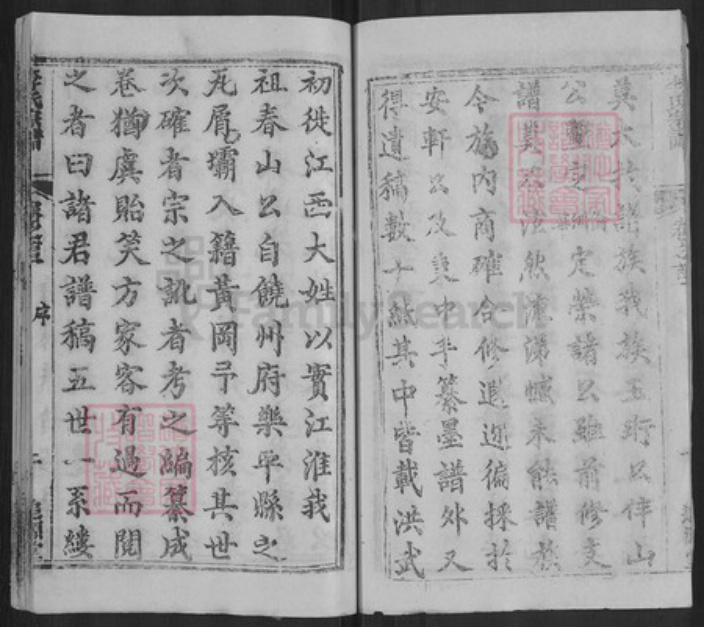 莫大於譜族我族玉珩公伴山
公 定榮諸公雖前修支
譜 泫然流涕憾未能譜族
今族內商確合修遐迩徧採於
安軒公及秉中手纂墨譜外又
得遺稿數十紙其中皆載洪武
初徙江西大姓以實江淮我
祖春山公自饒州府樂平縣之
瓦屑壩入籍黃岡予等核其世
次確者宗之訛者考之編纂成
卷猶虞貽笑方家客有過而閱
之者曰諸君譜稿五世一系縷
序
FamilySearch